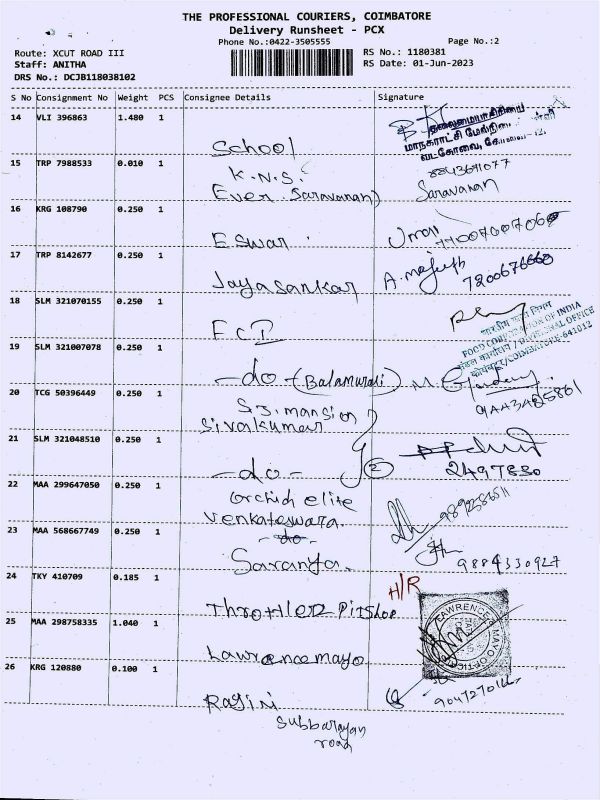 THE PROFESSIONAL COURIERS, COIMBATORE
Delivery Runsheet - PCX
Phone No.:0422-3505555
Page No.:2
Route: XCUT ROAD III
RS No.: 1180381
Staff: ANITHA
RS Date: 01-Jun-2023
DRS No.: DCJB118038102
S No Consignment No Weight PCS Consignee Details Signature
14 VLI 396863 1.480 1
School
மாநகராட்சி
வடகோவை,
15 TRP 7988533 0.010 1
K.N.S.
Ever Saravanan)
8843691077
Saravanan
16 KRG 108790 0.250 1
Eswar
17 TRP 8142677 0.250 1
Jaya sankar
18 SLM 321070155 0.250 1
FCI
FOOD CORPORATION OF INDIA
DIVISIONAL OFFICE
COIMBATORE-641012
19 SLM 321007078 0.250 1
-do- (Balamurali)
20 TCG 50396449 0.250 1
S.J. mansion
Sivakumar
21 SLM 321048510 0.250 1
-do-
2
2497830
22 MAA 299647050 0.250 1
Orchid elite
Venkateswara
23 MAA 568667749 0.250 1
do
Saranya
9884330927
24 TKY 410709 0.185 1
H/R
25 MAA 298758335 1.040 1
Lawrencemayo
LAWRENCE MAYO
26 KRG 120880 0.100 1
Ragini
Subbarayan
road